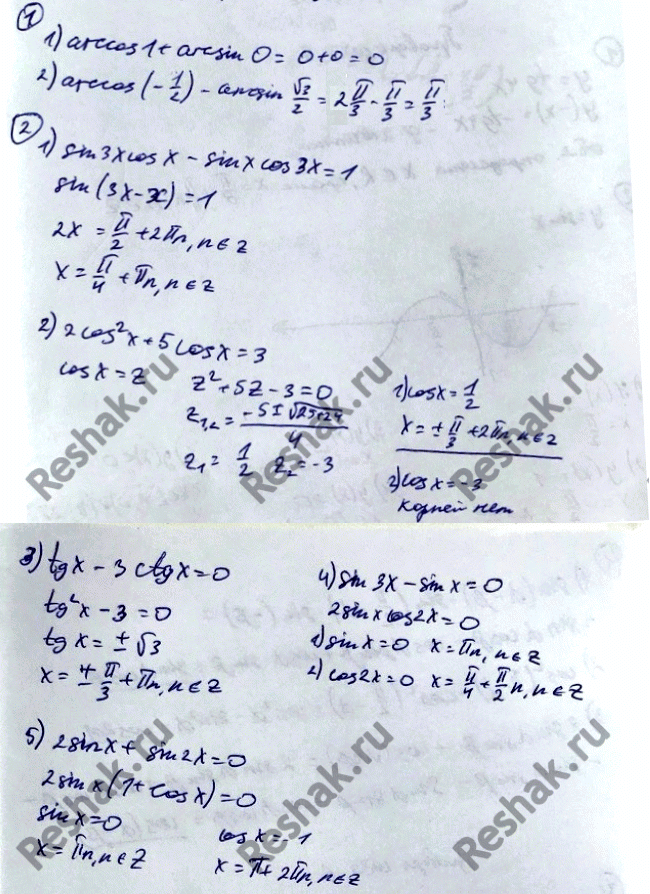 ①
1) arccos 1 + arcsin 0 = 0 + 0 = 0
2) arccos (-1/2) - arcsin √3/2 = 2π/3 - π/3 = π/3
②
1) sin 3x cos x - sin x cos 3x = 1
sin (3x - x) = 1
2x = π/2 + 2πn, n ∈ z
x = π/4 + πn, n ∈ z
2) 2cos²x + 5 cos x = 3
cos x = z
z² + 5z - 3 = 0
z₁,₂ = (-5 ± √25+24)/4
z₁ = 1/2 z₂ = -3
1) cos x = 1/2
x = ± π/3 + 2πn, n ∈ z
2) cos x = -3
корней нет
3) tg x - 3 ctg x = 0
tg²x - 3 = 0
tg x = ± √3
x = ± π/3 + πn, n ∈ Z
4) sin 3x - sin x = 0
2 sin x cos 2x = 0
1) sin x = 0 x = πn, n ∈ Z
2) cos 2x = 0 x = π/4 + π/2 n, n ∈ Z
5) 2 sin x + sin 2x = 0
2 sin x (1 + cos x) = 0
sin x = 0
x = πn, n ∈ Z
cos x = -1
x = π + 2πn, n ∈ Z
Reshak.ru
Reshak.ru
Reshak.ru
Reshak.ru
Reshak.ru
Reshak.ru